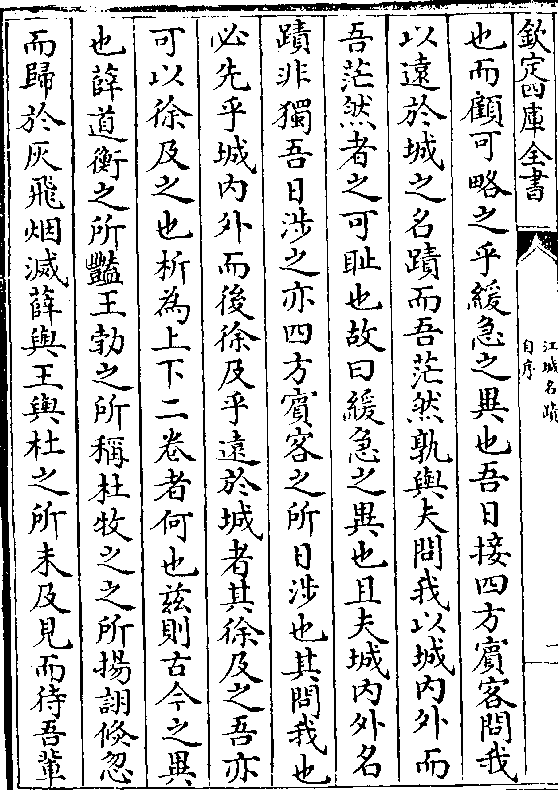 欽定四庫全書
江城名蹟
自序
一
也而顧可略之乎緩急之異也吾日接四方賓客問我
以遠於城之名蹟而吾茫然孰與夫問我以城内外而
吾茫然者之可耻也故曰緩急之異也且夫城内外名
蹟非獨吾日涉之亦四方賓客之所日涉也其問我也
必先乎城内外而後徐及乎遠於城者其徐及之吾亦
可以徐及之也析為上下二卷者何也兹則古今之異
也薛道衡之所豔王勃之所稱杜牧之之所揚詡倐忽
而歸於灰飛烟滅薛與王與杜之所未及見而待吾輩